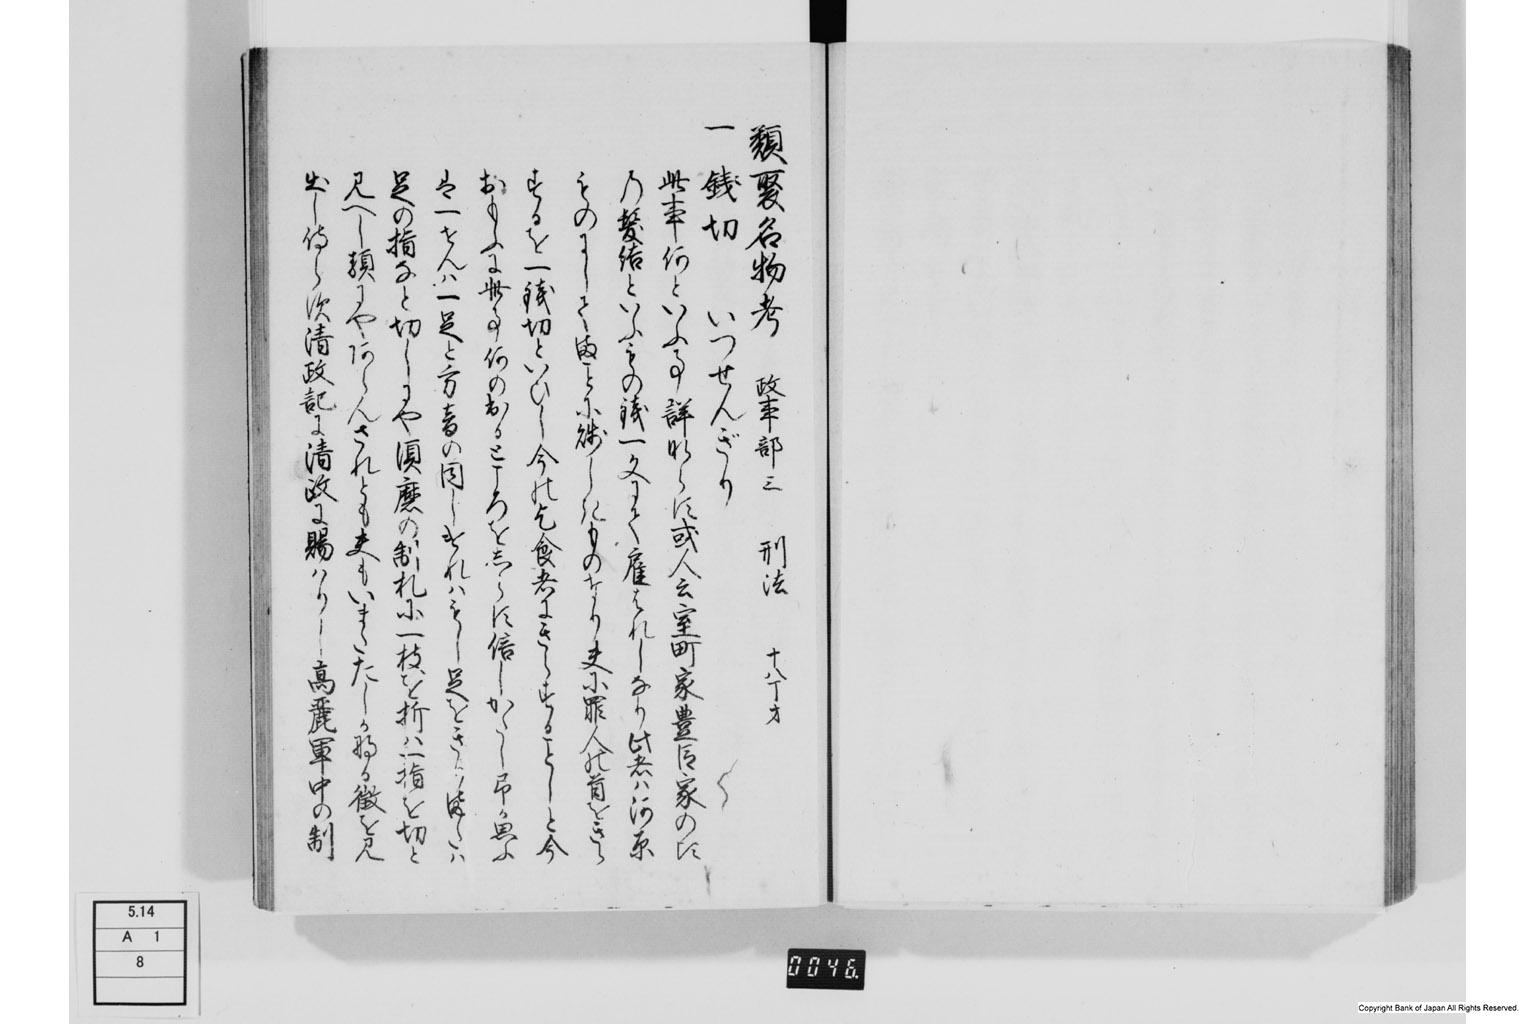 類聚名物考 政事部三 刑法 十八丁オ
一 銭切 いつせんぎり
此事何といふ事詳ならす或人云室町家豊臣家のに
乃髪結といふもの銭一文にて雇はれしなり此者ハ河原
ものにして ことに賤しきものなり夫に罪人の首をきら
するを一銭切といひし今の乞食者にきらすることしと今
おもふに此事何のよるところをしらす信しかたし
は一せんハ一足と方音の同しけれハもし足をきり またハ
足の指なと切しにや須磨の制札に一枝を折ハ一指を切と
見へし類にややあらんされとも夫もいまたたしかなる徴を見
出し侍らす清政記に清政に賜ハりし高麗軍中の制
5.14
A 1
8
0046.
Copyright Bank of Japan All Rights Reserved.